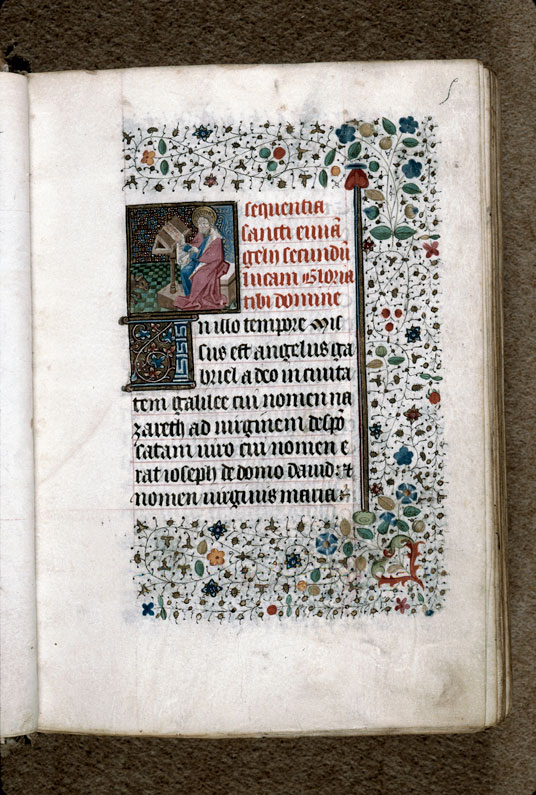 sequentia
sancti euuā
gelij secundū
lucam Gloria
tibi domine
In illo tempore Mis
sus est angelus ga
briel a deo in ciuita
tem galilee cui nomen na
zareth ad uirginem despō
satam uiro cui nomen e
rat ioseph de domo dauid: et
nomen uirginis maria